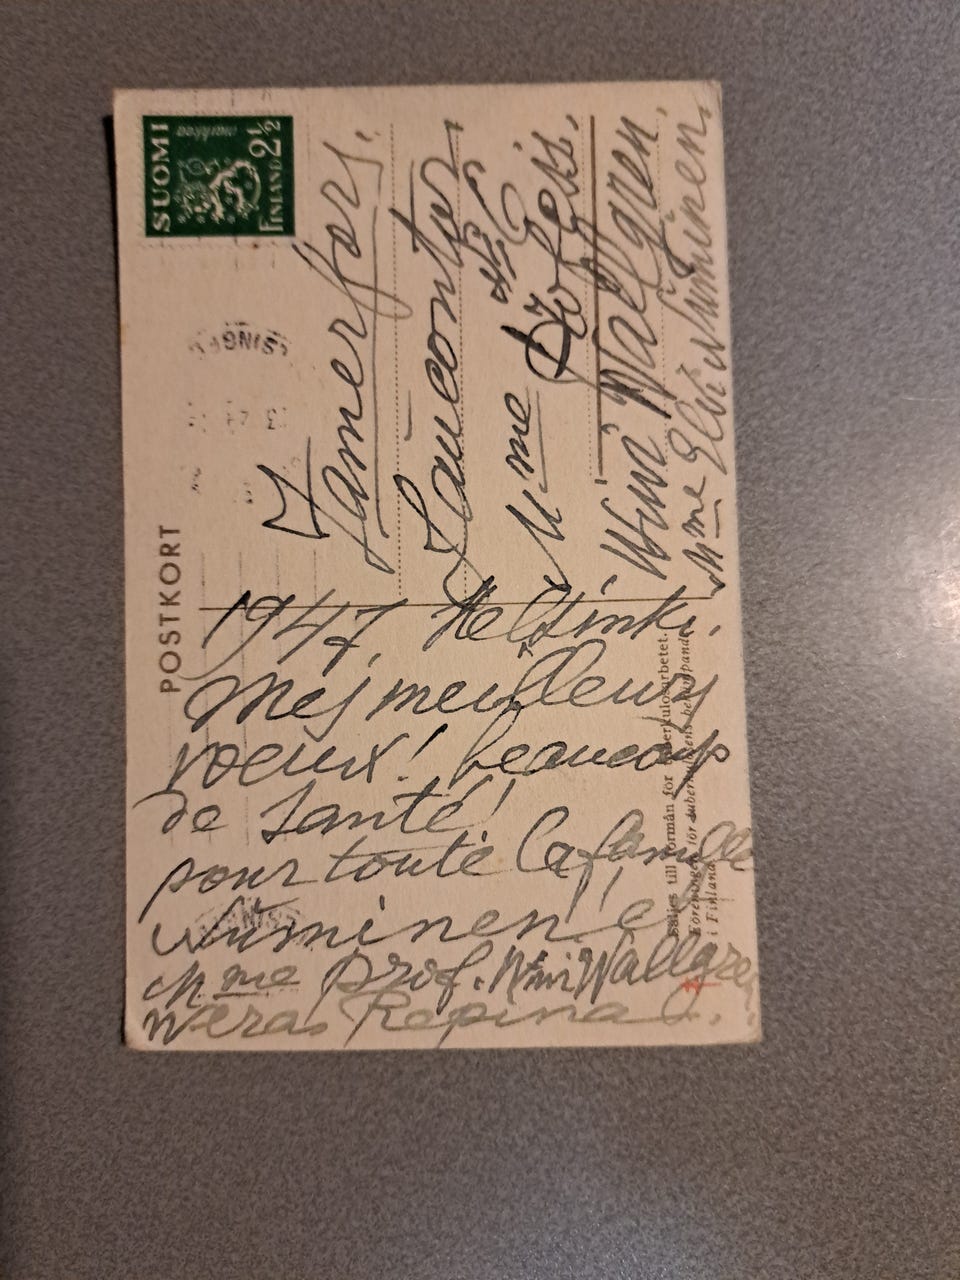 SUOMI
markkaa
FINLAND 2½
POSTKORT
Tamerfors.
Mme Profess.
Wivi Wallgren.
Mme Elvi Numinen.
1947, Helsinki.
Mes meilleurs
voeux! beaucoup
de santé!
pour toute la famille
Numinen! et
Mme prof. Wivi Wallgren
Wera Repina.
Säljes till förmån för tuberkulosarbetet.
Föreningen för tuberkulosens bekämpande
i Finland